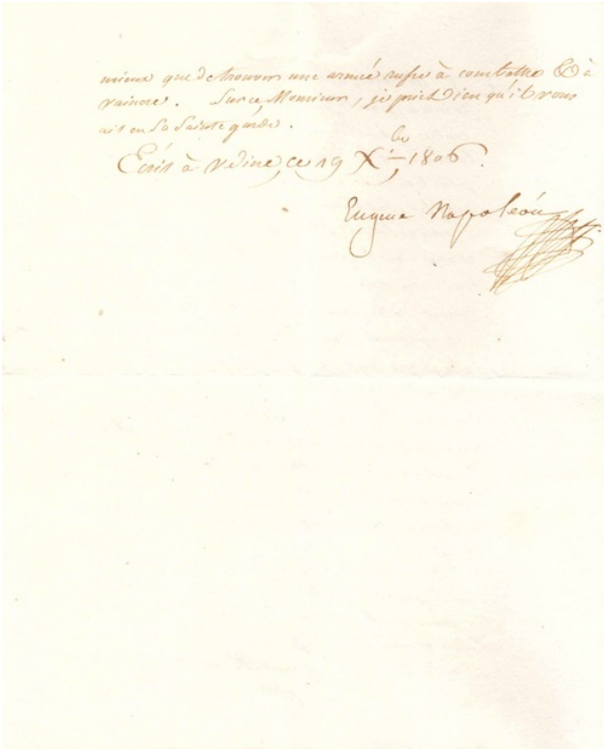 mieux que de trouver une armée russe à combattre & à
vaincre. Sur ce, Monsieur, je prie Dieu qu'il vous
ait en Sa Sainte garde.
Écrit à Udine, ce 19 Xbre 1806.
Eugène Napoléon